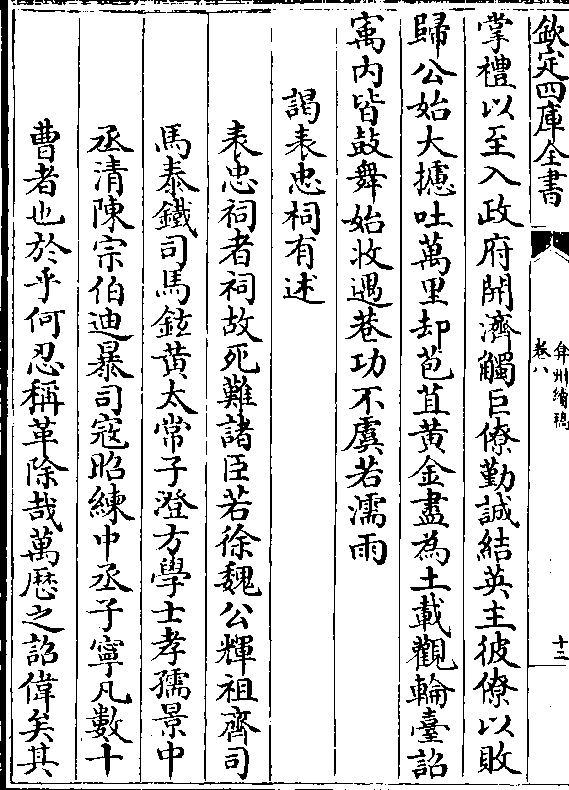 欽定四庫全書
弇州續稿
卷八
十二
掌禮以至入政府開濟觸巨僚勤誠結英主彼僚以敗
歸公始大攄吐萬里却苞苴黃金盡為土載觀輪臺詔
寓內皆鼓舞始收遇巷功不虞若濡雨
謁表忠祠有述
表忠祠者祠故死難諸臣若徐魏公輝祖齊司
馬泰鐵司馬鉉黃太常子澄方學士孝孺景中
丞清陳宗伯迪暴司寇昭練中丞子寧凡數十
曹者也於乎何忍稱革除哉萬歴之詔偉矣其